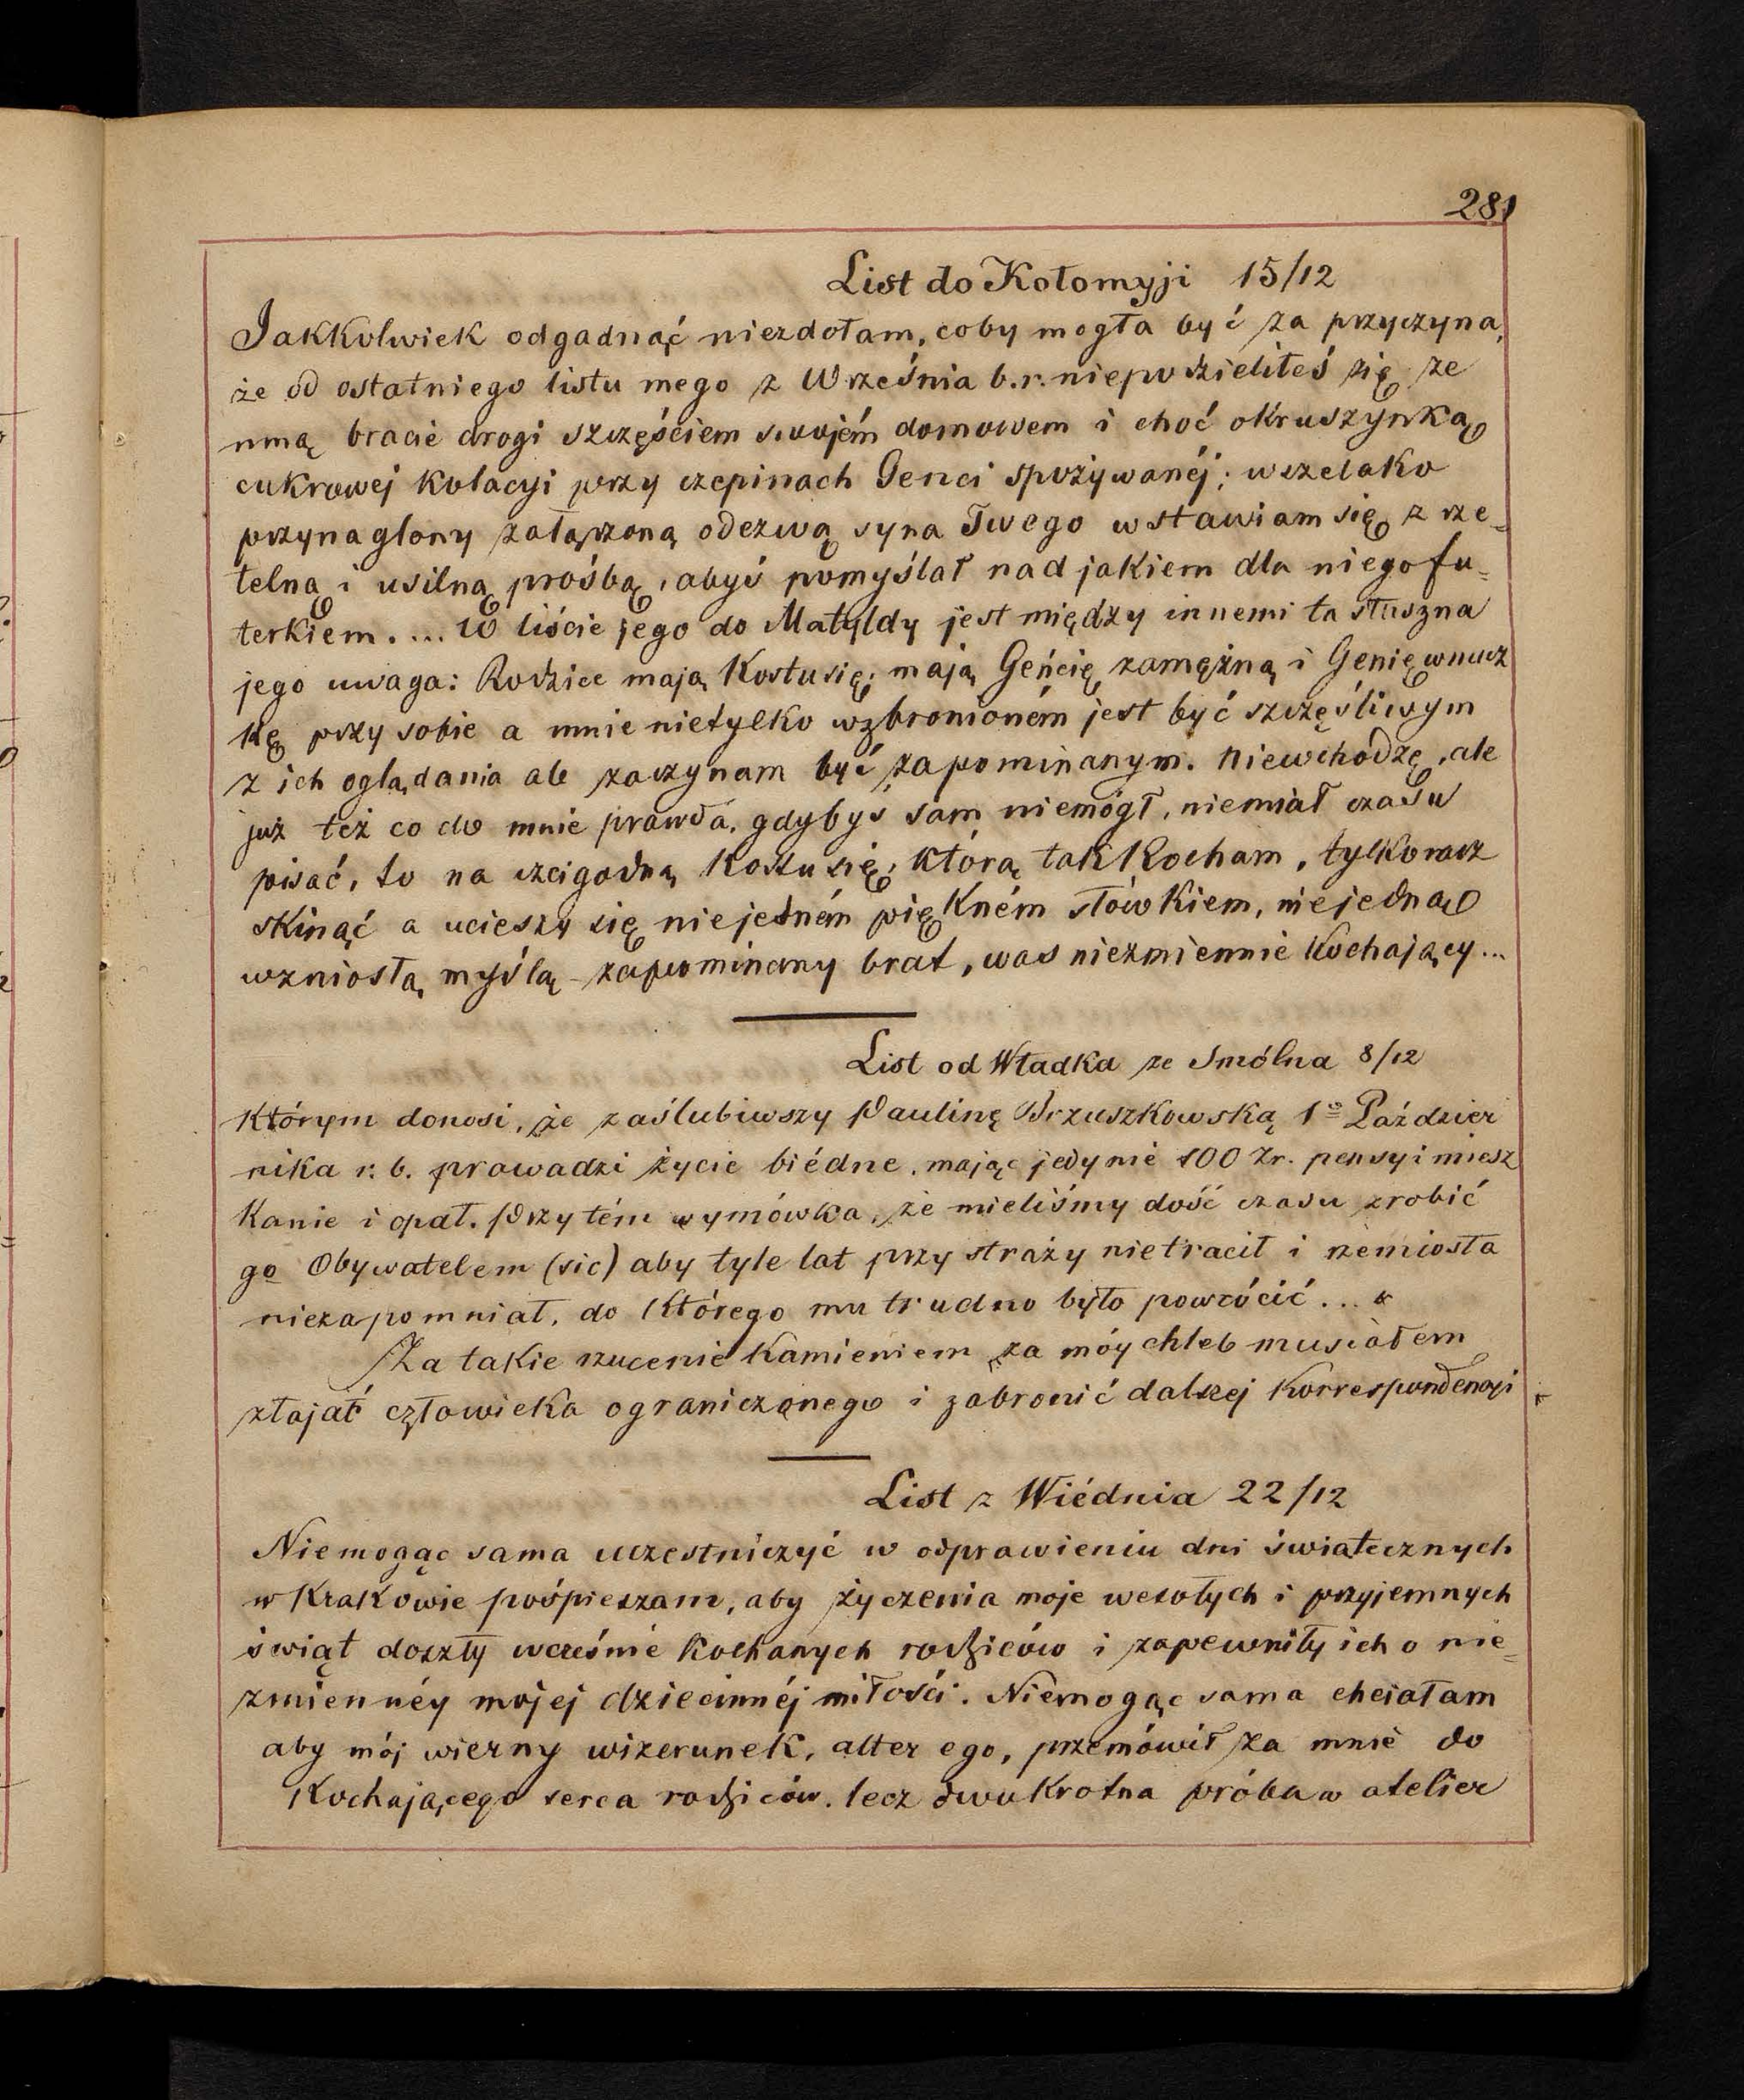 281
List do Kołomyji 15/12
Jakkolwiek odgadnąć niezdołam, coby mogła być za przyczyna,
że od ostatniego listu mego z Września b.r. niepodzieliłeś się ze
mną bracie drogi szczęściem swojém domowem i choć okruszynką
cukrowej kolacyi przy czepinach Genci spożywanéj; wszelako
przynaglony załączoną odezwą syna Twego wstawiam się z rze-
telną i usilną prośbą, abyś pomyślał nad jakiem dla niego fu-
terkiem. ... W liście jego do Matyldy jest między innemi ta słuszna
jego uwaga: Rodzice mają Kostusię; mają Geńcię zamężną i Genię wnucz
kę przy sobie a mnie nietylko wzbronioném jest być szczęśliwym
z ich oglądania ale zaczynam być zapominanym. Niewchodzę, ale
już też co do mnie prawda, gdybyś sam niemógł, niemiał czasu
pisać, to na czcigodną Kostusię, którą tak kocham, tylko racz
skinąć a ucieszy się niejedném piękném słówkiem, niejedną
wzniosłą myślą - zapominany brat, was niezmiennie kochający...
List od Władka ze Smólna 8/12
którym donosi, że zaślubiwszy Paulinę Brzuszkowską 1º Paździer
nika r. b. prowadzi życie biédne, mając jedynie 100 Zr. pensyi miesz
kanie i opał. Przytém wymówka, że mieliśmy dość czasu zrobić
go Obywatelem (sic) aby tyle lat przy straży nietracił i rzemiosła
niezapomniał, do którego mu trudno było powrócić...
Za takie rzucenie kamieniem za móy chleb musiałem
złajać człowieka ograniczonego i zabronić dalszej korrespondencyi
List z Wiédnia 22/12
Niemogąc sama uczestniczyć w odprawieniu dni światecznych
w Krakowie pośpieszam, aby życzenia moje wesołych i przyjemnych
świąt doszły wcześnie kochanych rodziców i zapewniły ich o nie-
zmiennéy mojej dziecinnéj miłości. Niemogąc sama chciałam
aby mój wierny wizerunek, alter ego, przemówił za mnie do
kochającego serca rodziców, lecz dwukrotna próba w atelier